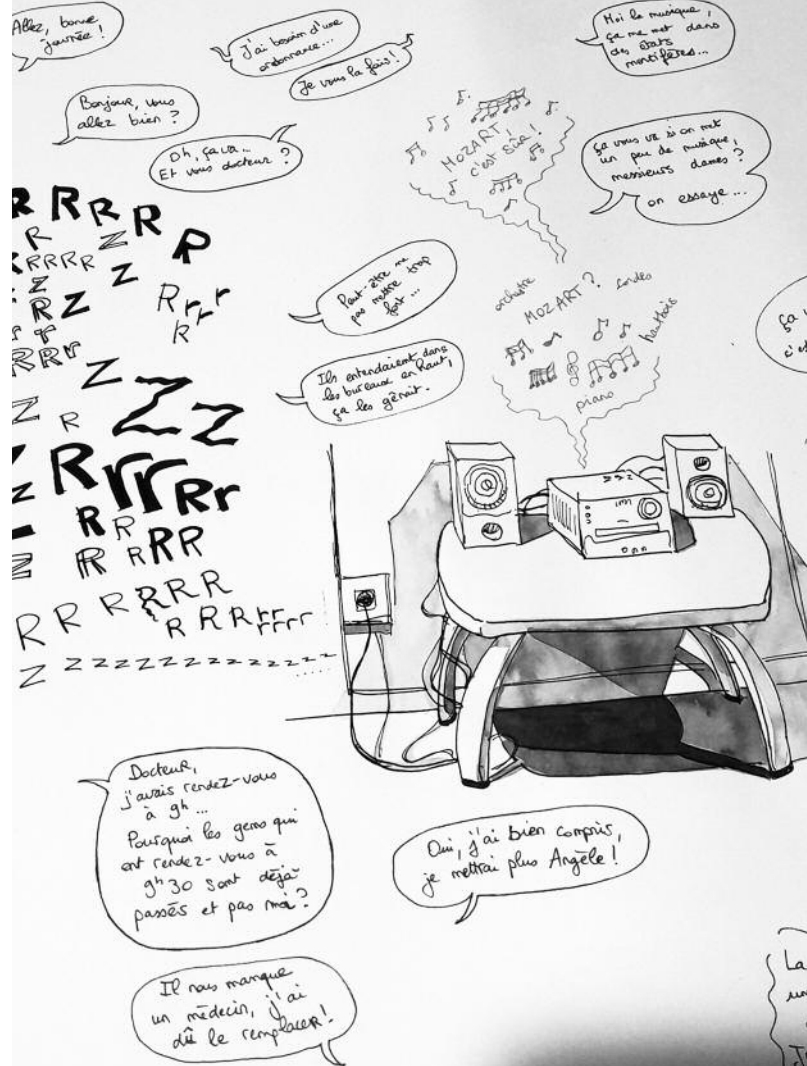 Allez, bonne
journée !
J'ai besoin d'une
ordonnance...
Je vous la fais !
Moi la musique,
ça me met dans
des états
mortifères...
Bonjour, vous
allez bien ?
Oh, ça va...
Et vous docteur ?
MOZART,
c'est sûr !
ça vous va si on met
un peu de musique,
messieurs dames ?
on essaye...
R R R R R
R Z
RRRR R
Z Z
R Z
R r r r
R
RRr
Z Z
Z R Z Z
R r r R r
R R
R R RR
R R R R R R
R R R r r r r r r
Z z z z z z z z z z z z z z z
Peut-être ne
pas mettre trop
fort...
Ils entendaient dans
les bureaux en haut,
ça les gênait.
orchestre
MOZART ?
cordes
hautbois
piano
ça
c'es
Docteur,
j'avais rendez-vous
à 9h...
Pourquoi les gens qui
ont rendez-vous à
9h30 sont déjà
passés et pas moi ?
Oui, j'ai bien compris,
je mettrai plus Angèle !
Il nous manque
un médecin, j'ai
dû le remplacer !
La
un